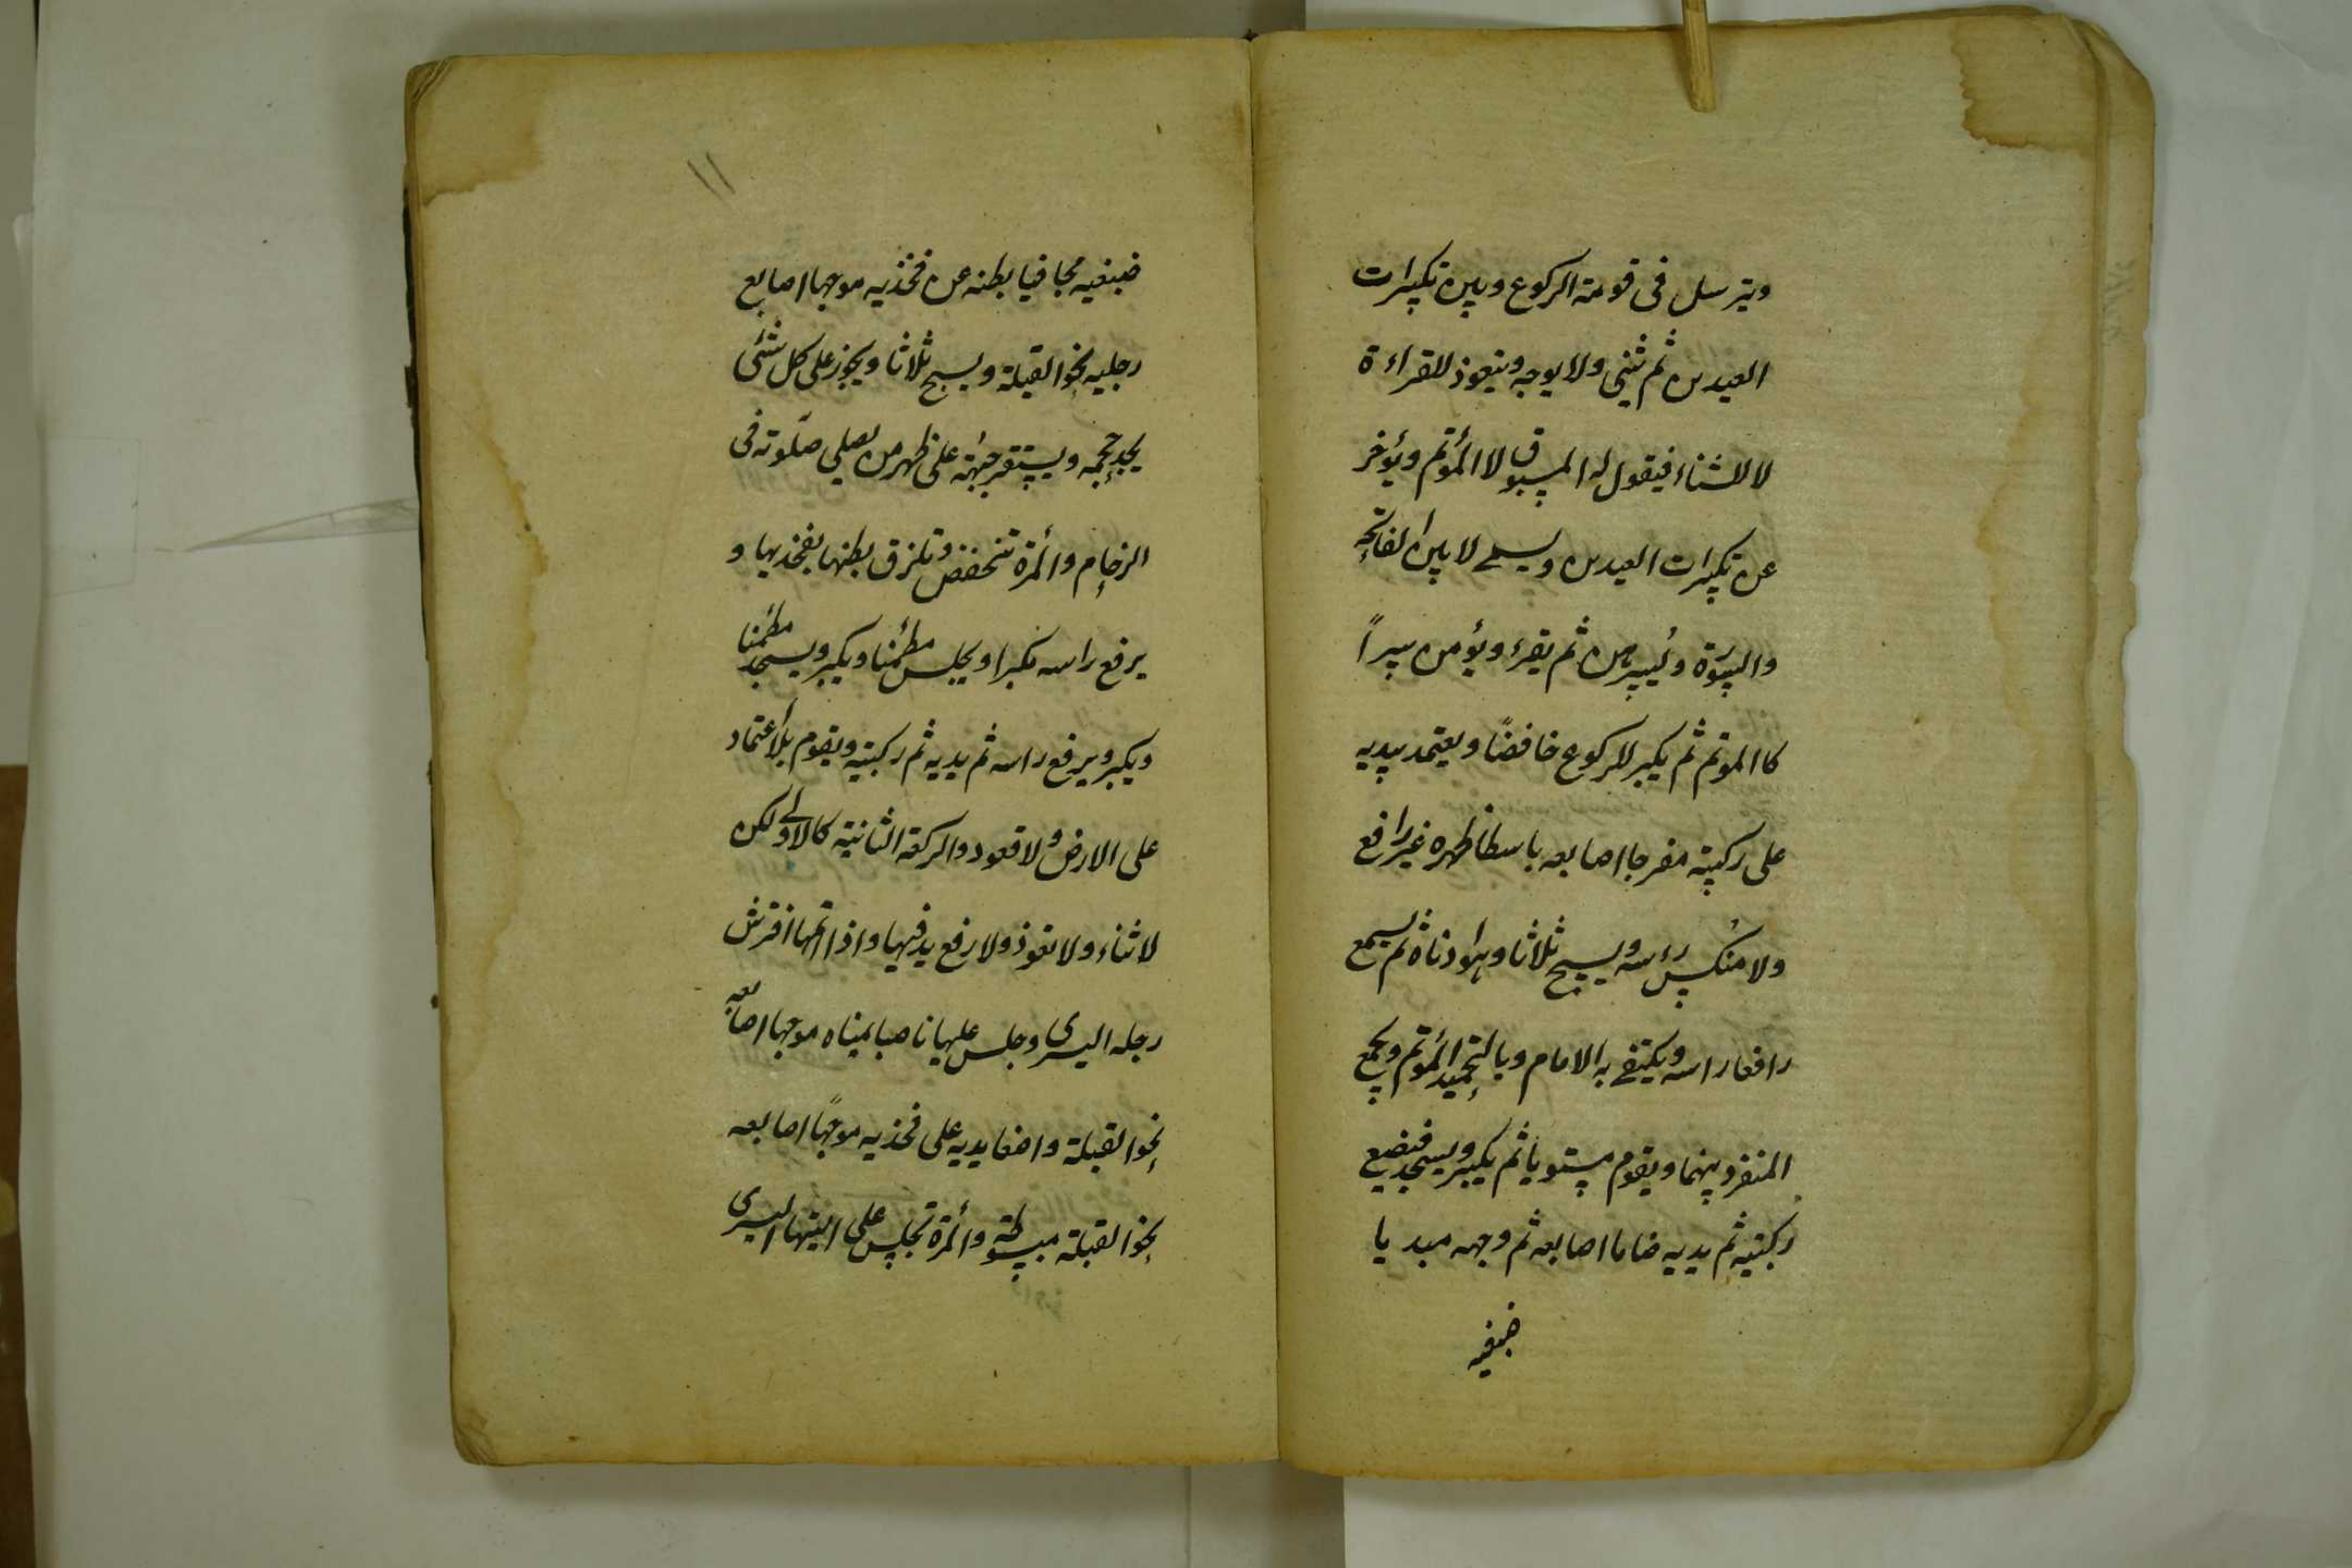 ويترسل فى قومة الركوع وبين تكبيرات
العيدين ثم يثنى ولا يوجه ويتعوذ للقراءة
لا للثناء فيقول له المسبوق لا المؤتم ويؤخر
عن تكبيرات العيدين ويسمى لا بين الفاتحة
والسورة ويسرهن ثم يقرء ويؤمن سراً
كا المؤتم ثم يكبر للركوع خافضًا ويعتمد بيديه
على ركبتيه مفرجا اصابعه باسطا ظهره غير رافع
ولا منكس رءسه ويسبح ثلاثا وهو ادناه ثم يسمع
رافعا راسه ويكتفى به الامام وبالتحميد المؤتم ويجمع
المنفرد بينهما ويقوم مستويا ثم يكبر ويسجد فيضع
ركبتيه ثم يديه ضاما اصابعه ثم وجهه مبديا
ضبعيه
١١
ضبعيه مجافيا بطنه عن فخذيه موجها اصابع
رجليه نحو القبلة ويسبح ثلاثا ويجوز على كل شئى
يجد حجمه ويستقر جبهته على ظهر من يصلى صلوته فى
الزحام والمرأة تنخفض وتلزق بطنها بفخذيها و
يرفع راسه مكبرا ويجلس مطمئنا ويكبر ويسجد مطمئنا
ويكبر ويرفع راسه ثم يديه ثم ركبتيه ويقوم بلا اعتماد
على الارض ولا قعود والركعة الثانية كالاولى لكن
لا ثناء ولا تعوذ ولا رفع يد فيها واذا اتمها افترش
رجله اليسرى وجلس عليها ناصبا يمناه موجها اصابعه
نحو القبلة واضعا يديه على فخذيه موجهًا اصابعه
نحو القبلة مبسوطة والمرأة تجلس على اليتها اليسرى